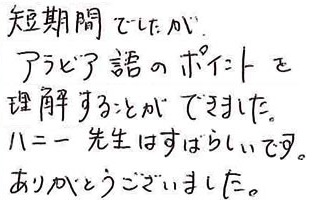 短期間でしたが、
アラビア語のポイントを
理解することができました。
ハニー先生はすばらしいです。
ありがとうございました。